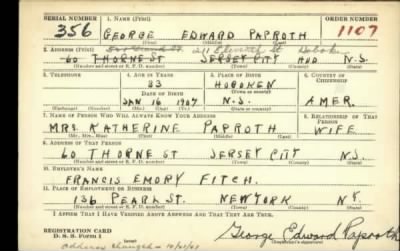 SERIAL NUMBER 1. NAME (Print) ORDER NUMBER
356 GEORGE EDWARD PAPROTH 1107
(First) (Middle) (Last)
2. ADDRESS (Print)
60 THORNE ST JERSEY CITY HUD N.J.
(Number and street or R. F. D. number) (Town) (County) (State)
3. TELEPHONE 4. AGE IN YEARS 5. PLACE OF BIRTH 6. COUNTRY OF CITIZENSHIP
33 HOBOKEN
DATE OF BIRTH (Town or county)
JAN 16 1907 N.J. AMER.
(Exchange) (Number) (Mo.) (Day) (Yr.) (State or country)
7. NAME OF PERSON WHO WILL ALWAYS KNOW YOUR ADDRESS 8. RELATIONSHIP OF THAT PERSON
MRS KATHERINE PAPROTH WIFE
(Mr., Mrs., Miss) (First) (Middle) (Last)
9. ADDRESS OF THAT PERSON
60 THORNE ST JERSEY CITY N.J.
(Number and street or R. F. D. number) (Town) (County) (State)
10. EMPLOYER'S NAME
FRANCIS EMORY FITCH.
11. PLACE OF EMPLOYMENT OR BUSINESS
136 PEARL ST. NEW YORK N.Y.
(Number and street or R. F. D. number) (Town) (County) (State)
I AFFIRM THAT I HAVE VERIFIED ABOVE ANSWERS AND THAT THEY ARE TRUE.
REGISTRATION CARD
D. S. S. Form 1 George Edward Paproth
(Registrant's signature)
Address changed